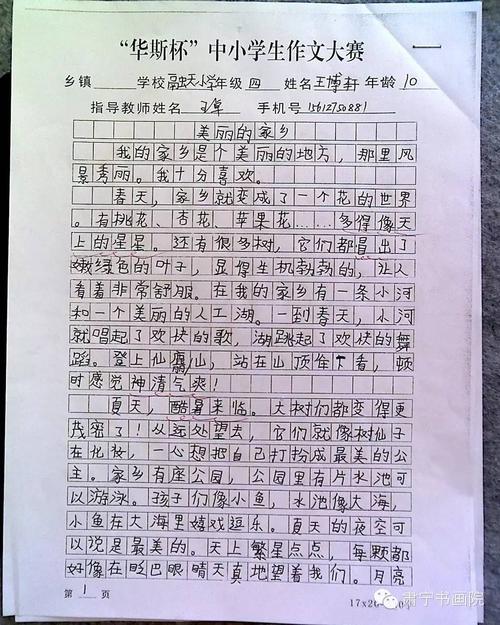 “华斯杯”中小学生作文大赛
一
乡镇 学校 融天小学 年级 四 姓名 王博轩 年龄 10
指导教师姓名 王卓 手机号 15612750881
美丽的家乡
我的家乡是个美丽的地方,那里风
景秀丽。我十分喜欢。
春天,家乡就变成了一个花的世界
。有桃花、杏花、苹果花……多得像天
上的星星。还有很多树,它们都冒出了
嫩绿色的叶子,显得生机勃勃的,让人
看着非常舒服。在我的家乡有一条小河
和一个美丽的人工湖。一到春天,小河
就唱起了欢快的歌,湖跳起了欢快的舞
蹈。登上仙山,站在山顶往下看,顿
时感觉神清气爽!
夏天,酷暑来临。大树们都变得更
茂密了!从远处望去,它们就像树仙子
在化妆,一心想把自己打扮成最美的公
主。家乡有座公园,公园里有片水池可
以游泳。孩子们像小鱼,水池像大海,
小鱼在大海里嬉戏逗乐。夏天的夜空可
以说是最美的。天上繁星点点,每颗都
好像在眨巴眼睛天真地望着我们。月亮
第 1 页
17x20
肃宁书画院